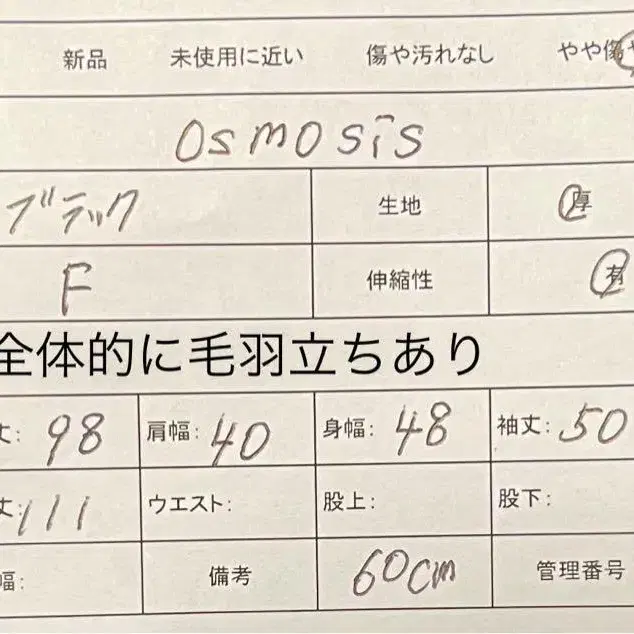 新品 未使用に近い 傷や汚れなし やや傷や
osmosis
ブラック 生地 厚
F 伸縮性 有
全体的に毛羽立ちあり
丈: 98 肩幅: 40 身幅: 48 袖丈: 50
丈: 111 ウエスト: 股上: 股下:
幅: 備考 60cm 管理番号